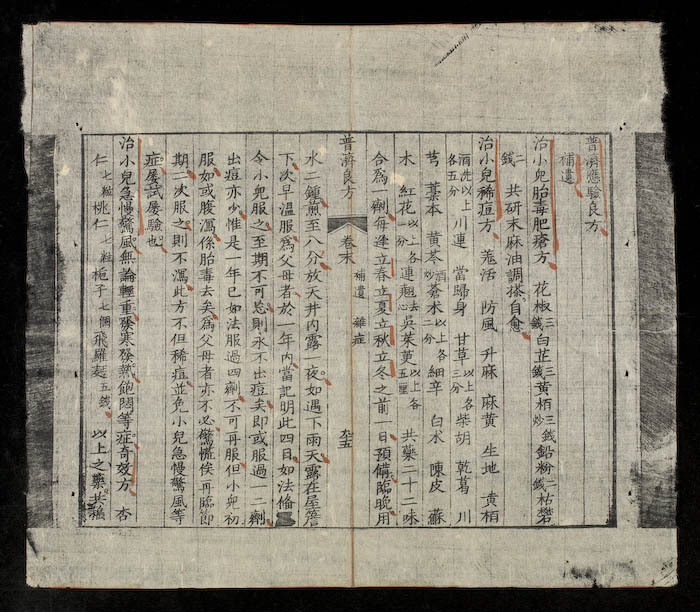 普濟應驗良方
補遺
治小兒胎毒肥瘡方 花椒三錢 白芷三錢 黃栢三錢炒 鉛粉二錢 枯礬
二錢 共研末麻油調搽自愈
治小兒稀痘方 羗活 防風 升麻 麻黃 生地 黃栢
酒洗以上各五分 川連 當歸身 甘草以上各三分 柴胡 乾葛 川
芎 藁本 黃芩酒炒 蒼术以上各二分 細辛 白术 陳皮 蘇
木 紅花以上各一分 連翹去心 吳茱萸以上各五厘 共藥二十二味
合爲一劑每逢立春立夏立秋立冬之前一日預備臨晚用
普濟良方 卷末 補遺 雜症
水二鍾煎至八分放天井內露一夜如遇下雨天露在屋簷
下次早溫服爲父母者於一年內當記明此四日如法脩
令小兒服之至期不可忘則永不出痘矣即或服過一二劑
出痘亦少惟是一年已如法服過四劑不可再服但小兒初
服如或腹瀉係胎毒去矣爲父母者亦不必驚慌俟再臨節
期二次服之則不瀉此方不但稀痘並免小兒急慢驚風等
症屢試屢驗也
治小兒急慢驚風無論輕重發寒發熱飽悶等症奇效方 杏
仁七粒 桃仁七粒 梔子七個 飛羅麵五錢 以上之藥共